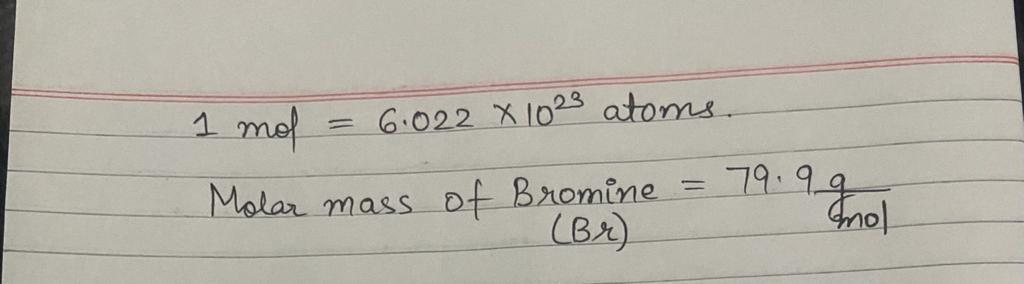 1 mol = 6.022 × 10²³ atoms.
Molar mass of Bromine = 79.9 g/mol
(Br)